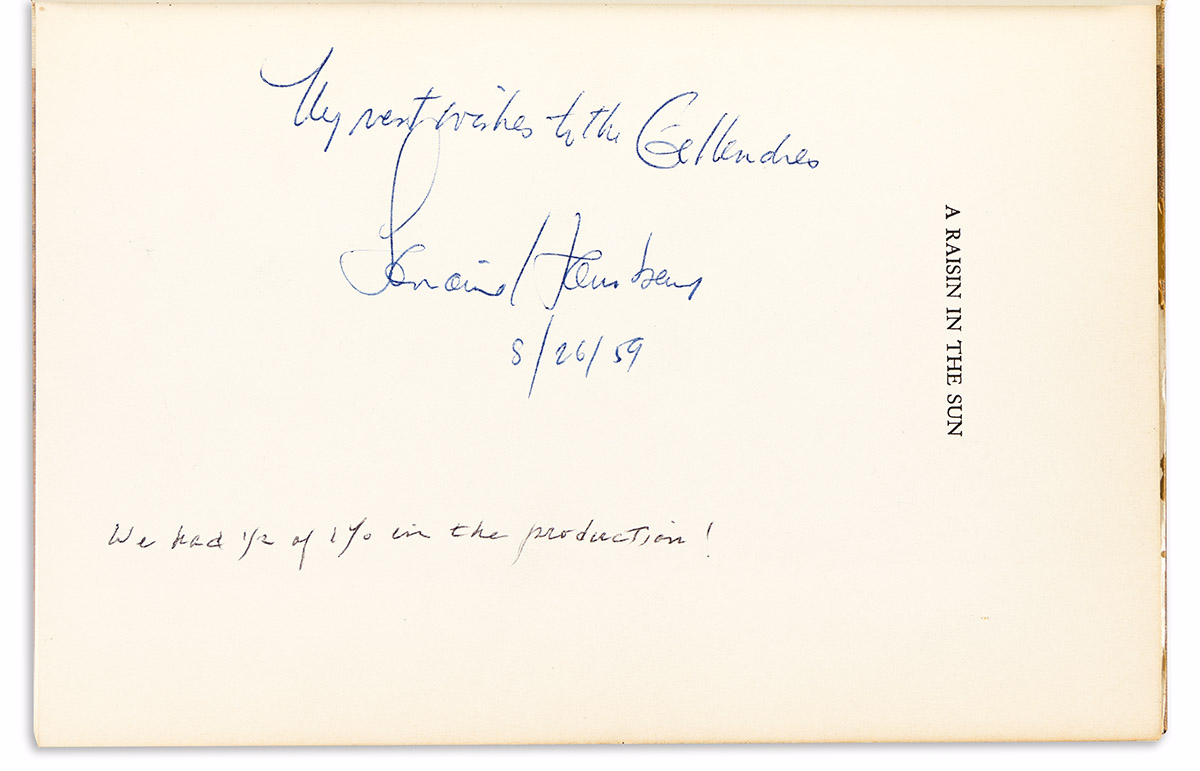 My best wishes to the Gellendres
Lorraine Hansberry
8/26/59
We had 1/2 of 1% in the production!
A RAISIN IN THE SUN